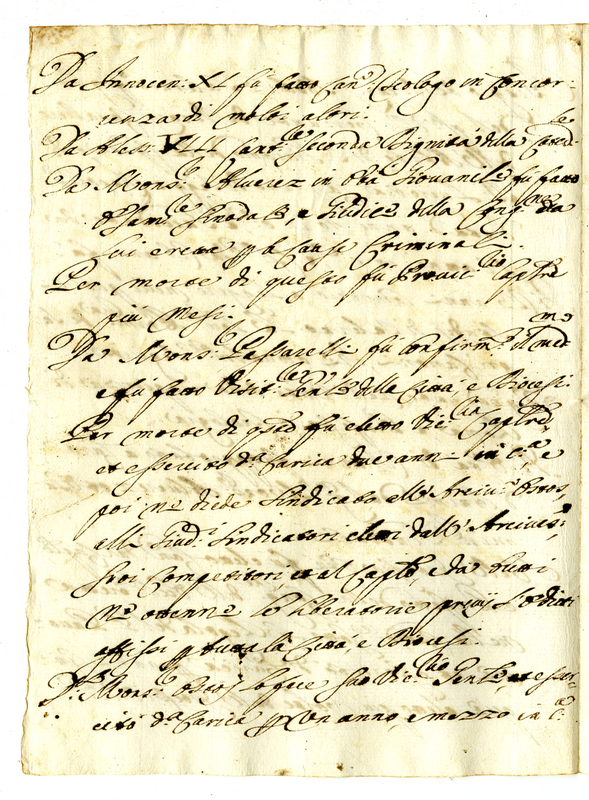 Da Innocen: XI fù fatto Can.º Teologo in concor-
renza di molti altri.
Da Aless: VIII Cant.re seconda Dignità della Cated.le
Da Mons.r Alverez in età Giovanile fù fatto
Esam.re Sinodale, e Giudice della Cong.ne da
lui eretta p le Cause Criminali.
Per morte di questo fù Provic.rio Cap.lre
più Mesi.
Da Mons.r Passarelli fù confirm.º il med.mo
e fù fatto Visit.re Gen.le della Città, e Diocesi.
Per morte di qsto fù eletto Vic.rio Cap.lre,
et essercitò d.a Carica due anni in c.a, e
poi ne diede Sindicato all'Arciv.º
alli Giud.i Sindicatori eletti dall'Arcives.º
suoi Competitori et al Cap.lo, e da tutti
ne ottenne le liberatorie previj li editti
affissi p tutta la Città e Diocesi.
D.º Mons.r lo fece suo Vic.rio Gen.le, et esser-
citò d.a Carica p un anno, e mezzo in c.a